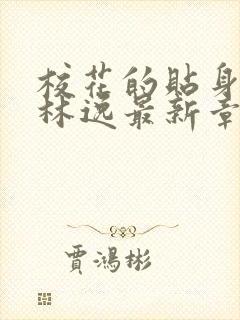 校花的贴身
林逸最新章
贾鸿彬